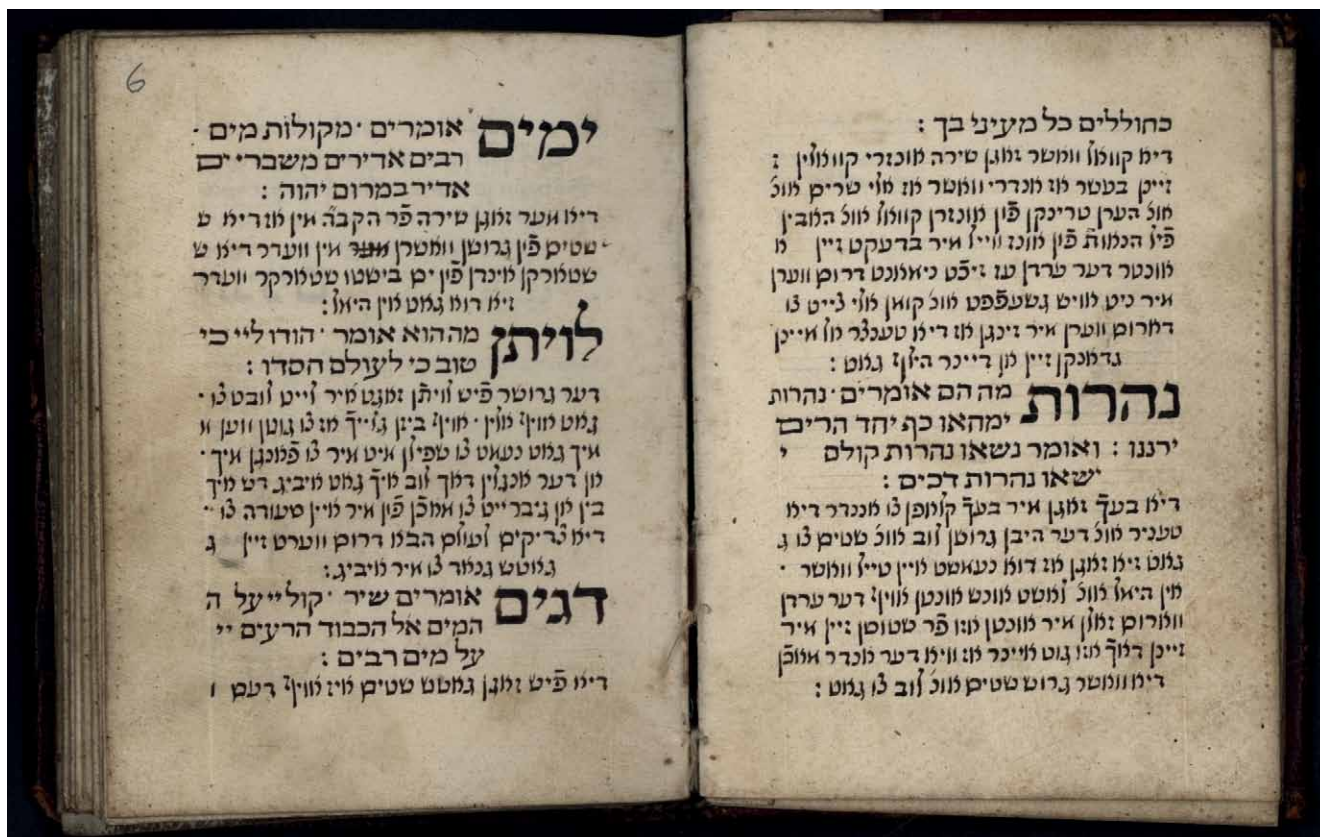 כחוללים כל מעיני בך :
דיא קוואל וואשר זאגן שירה אונזרי קוואלין :
זיינן בעשר אז אנדרי וואשר אז אלי אונ'
אונ' הערן טרינקן פֿין אונזרן קוואל אונ' האבין
פֿיל הנאות פֿין אונז ווייל איר בדעקט זיין א
אונטר דער ערדן עז זיכֿט ניאמנט דרום ווערן
איר ניט אויש גשעפֿפט אונ' קומן אלי צייט צו
דארום ווערן איר זינגן אז דיא טענצר אל איינן
גדאנקן זיין אן דיינר הילף גאט :
נהרות מה הם אומרים · נהרות
ימהאו כף יחד הרים
ירננו : ואומר נשאו נהרות קולם י
ישאו נהרות דכים :
דיא בעך זאגן איר בעך קלאפן צו אננדר דיא
אונ' דער היבן גרושן לוב אונ' שטים צו ג
גאט זיא זאגן אז דוא נעמשט איין טייל וואשר ·
אין היאל אונ' לאשט אונש אונטן אויף דער ערדן
ווארום זאלן איר אונטן אזו פֿר שטושן זיין איר
זיינן דאך אזו גוט איינר אז וויא דער אנדר מאכֿן
דיא וואשר גרוש שטים אונ' לוב צו גאט :
6
ימים אומרים · מקולות מים ·
רבים אדירים משברי ים
אדיר במרום יהוה :
דיא מער זאגן שירה פֿר הקבה אין אז דיא ש
שטים פֿין גרושן וואשרן מער אין ווערר דיא ש
שטארקן אינדן פֿין ים בישטו שטארקר ווערר
זיא דוא גאט אין היאל :
לויתן מה הוא אומר · הודו ליי כי
טוב כי לעולם הסדו :
דער גרושר פֿיש לויתן זאגט איר לייט לובט צו ·
גאט אויף אלין · אויף בינן גלייך אזו גוטן ווען א
איך גאט נעמט צו שפילן מיט איר צו פֿאנגן איך ·
אן דער לוב איך גאט איביג דש איך
בין אן גיברייט צו מאכֿן פֿין איר איין סעודה צו ·
דיא צדיקים לעולם הבא דרום ווערט זיין ג
גאטש גנאד צו איר איביג :
דגים אומרים שיר · קול יי על ה
המים אל הכבוד הרעים יי
על מים רבים :
דיא פֿיש זאגן גאטש שטים איז אויף דעם ו